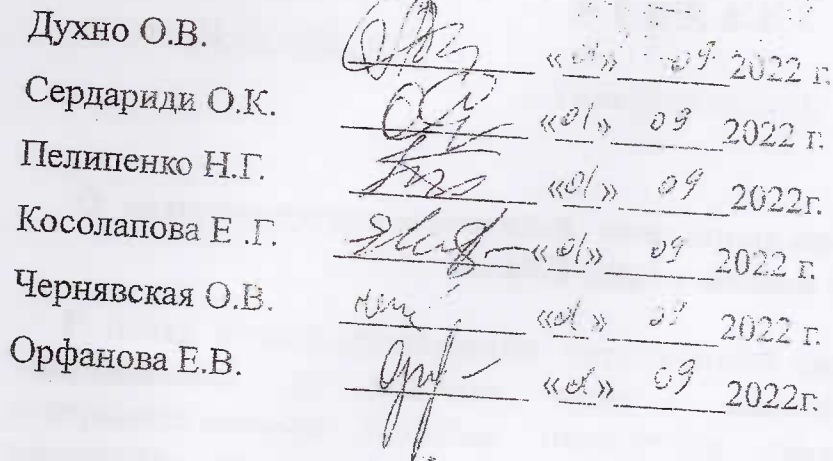 Духно О.В. «01» 09 2022 г.
Сердариди О.К. «01» 09 2022 г.
Пелипенко Н.Г. «01» 09 2022г.
Косолапова Е .Г. «01» 09 2022 г.
Чернявская О.В. «01» 09 2022 г.
Орфанова Е.В. «01» 09 2022г.